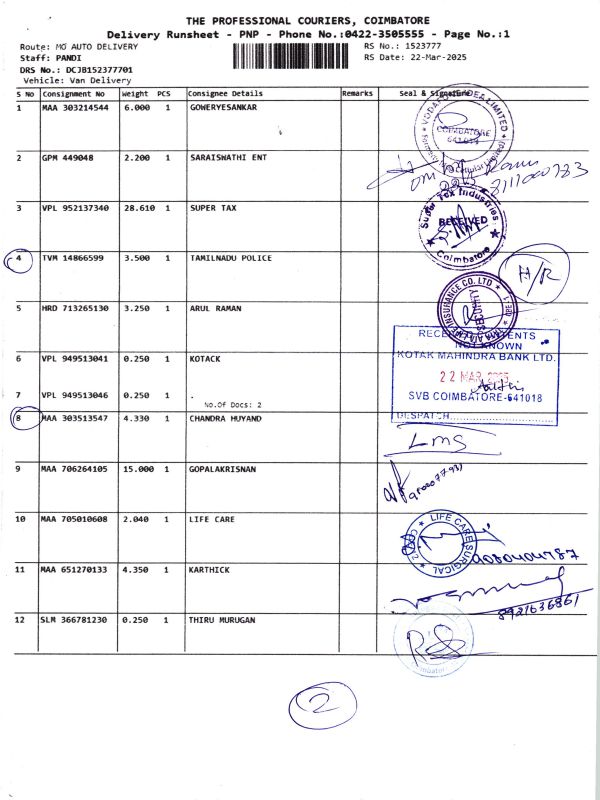 THE PROFESSIONAL COURIERS, COIMBATORE
Delivery Runsheet - PNP - Phone No.:0422-3505555 - Page No.:1
Route: MO AUTO DELIVERY
RS No.: 1523777
Staff: PANDI
RS Date: 22-Mar-2025
DRS No.: DCJB152377701
Vehicle: Van Delivery
S No Consignment No Weight PCS Consignee Details Remarks Seal & Signature
1 MAA 303214544 6.000 1 GOWERYESANKAR
COIMBATORE
641014
2 GPM 449048 2.200 1 SARAISWATHI ENT
3 VPL 952137340 28.610 1 SUPER TAX
Super Tex Industries
RECEIVED
Coimbatore
4 TVM 14866599 3.500 1 TAMILNADU POLICE
H/R
5 HRD 713265130 3.250 1 ARUL RAMAN
INSURANCE CO. LTD.
SECURITY
RECEIVED CONTENTS
NOT KNOWN
6 VPL 949513041 0.250 1 KOTACK
KOTAK MAHINDRA BANK LTD.
22 MAR 2025
7 VPL 949513046 0.250 1 .
SVB COIMBATORE-641018
No.Of Docs: 2
DESPATCH
8 MAA 303513547 4.330 1 CHANDRA HUYAND
LMS
9 MAA 706264105 15.000 1 GOPALAKRISNAN
10 MAA 705010608 2.040 1 LIFE CARE
LIFE CARE SURGICAL
11 MAA 651270133 4.350 1 KARTHICK
8921636861
12 SLM 366781230 0.250 1 THIRU MURUGAN
2